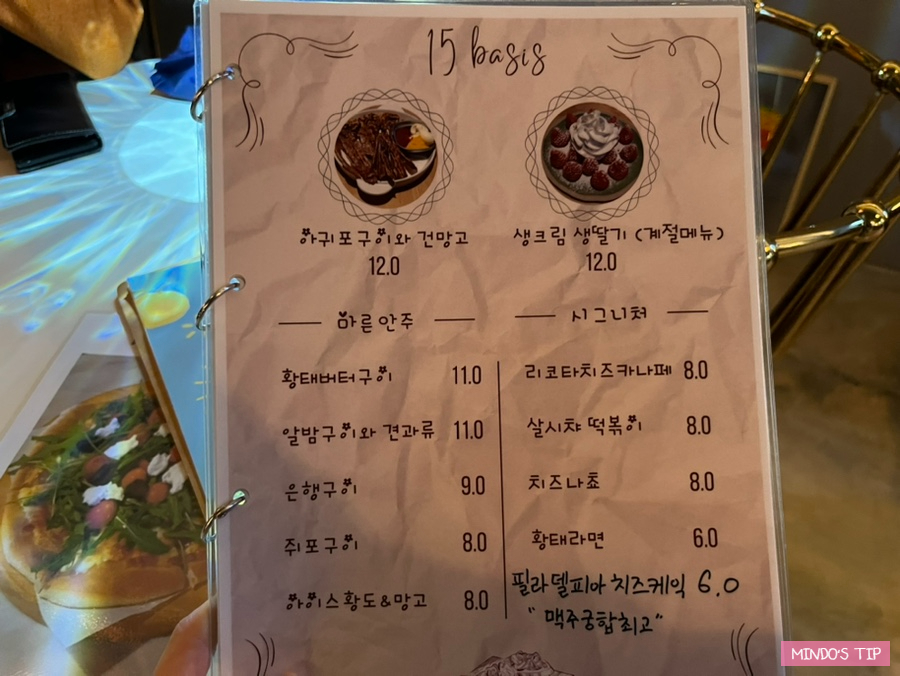 15 basis
아귀포구이와 건망고
12.0
생크림 생딸기 (계절메뉴)
12.0
마른안주
황태버터구이 11.0
알밤구이와 견과류 11.0
은행구이 9.0
쥐포구이 8.0
아이스황도&망고 8.0
시그니처
리코타치즈카나페 8.0
살시챠 떡볶이 8.0
치즈나쵸 8.0
황태라면 6.0
필라델피아 치즈케익 6.0
"맥주궁합최고"
MINDO'S TIP